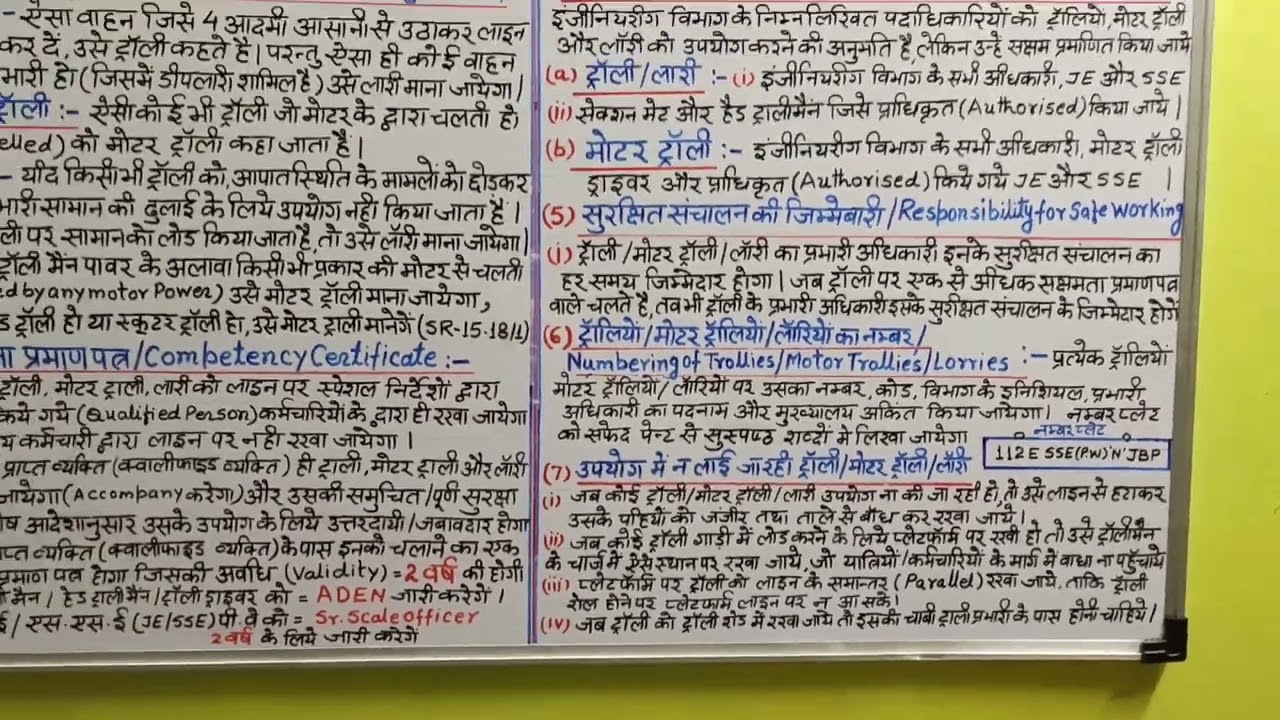 - ऐसा वाहन जिसे 4 आदमी आसानी से उठाकर लाइन
कर दें, उसे ट्रॉली कहते है। परन्तु ऐसा ही कोई वाहन
भारी हो (जिसमें डीपलारी शामिल है) उसे लारी माना जायेगा।
ट्रॉली :- ऐसी कोई भी ट्रॉली जो मोटर के द्वारा चलती हो
elled) को मोटर ट्रॉली कहा जाता है।
- यदि किसी भी ट्रॉली को, आपात स्थिति के मामलों को छोडकर
भारी सामान की ढुलाई के लिये उपयोग नही किया जाता हैं।
ली पर सामान को लोड किया जाता है, तो उसे लॉरी माना जायेगा।
ट्रॉली मैन पावर के अलावा किसी भी प्रकार की मोटर से चलती
ed by any motor Power) उसे मोटर ट्रॉली माना जायेगा,
ड ट्रॉली हो या स्कूटर ट्रॉली हो, उसे मोटर ट्राली मानेगें (SR-15.18/1)
ता प्रमाण पत्र/Competency Certificate :-
ट्रॉली, मोटर ट्राली, लारी को लाइन पर स्पेशल निर्देशों द्वारा
किये गये (Qualified Person) कर्मचारियों के द्वारा ही रखा जायेगा
य कर्मचारी द्वारा लाइन पर नही रखा जायेगा ।
प्राप्त व्यक्ति (क्वालीफाइड व्यक्ति) ही ट्राली, मोटर ट्राली और लॉरी
जायेगा (Accompany करेगा) और उसकी समुचित/पूर्ण सुरक्षा
ष आदेशानुसार उसके उपयोग के लिये उत्तरदायी/जवाबदार होगा
प्त व्यक्ति (क्वालीफाइड व्यक्ति) के पास इनको चलाने का एक
प्रमाण पत्र होगा जिसकी अवधि (Validity) = 2 वर्ष की होगी
मैन / हेड ट्रालीमैन / ट्रॉली ड्राइवर को = ADEN जारी करेगें ।
ई / एस.एस.ई (JE/SSE) पी.वे को = Sr. Scale officer
2 वर्ष के लिये जारी करेगें
इंजीनियरींग विभाग के निम्नलिखित पदाधिकारियों को ट्रॉलियों, मोटर ट्रॉली
और लॉरी को उपयोग करने की अनुमति है, लेकिन उन्हे सक्षम प्रमाणित किया जाये
(a) ट्रॉली/लारी :- (i) इंजीनियरींग विभाग के सभी अधिकारी, JE और SSE
(ii) सेक्शन मेट और हैड ट्रालीमैन जिसे प्राधिकृत (Authorised) किया जाये ।
(b) मोटर ट्रॉली :- इंजीनियरींग विभाग के सभी अधिकारी, मोटर ट्रॉली
ड्राइवर और प्राधिकृत (Authorised) किये गये JE और SSE ।
(5) सुरक्षित संचालन की जिम्मेबारी/Responsibility for Safe Working
(i) ट्रॉली/मोटर ट्रॉली/लॉरी का प्रभारी अधिकारी इनके सुरक्षित संचालन का
हर समय जिम्मेदार होगा। जब ट्रॉली पर एक से अधिक सक्षमता प्रमाण पत्र
वाले चलते है, तव भी ट्रॉली के प्रभारी अधिकारी इसके सुरक्षित संचालन के जिम्मेदार होगें
(6) ट्रॉलियों/मोटर ट्रॉलियों/लॉरियों का नम्बर/
Numbering of Trollies/Motor Trallies/Lorries :- प्रत्येक ट्रॉलियों
मोटर ट्रॉलियों/ लॉरियों पर उसका नम्बर, कोड, विभाग के इनिशियल, प्रभारी
अधिकारी का पदनाम और मुख्यालय अंकित किया जायेगा। नम्बर प्लेट
को सफेद पेन्ट से सुस्पष्ठ शब्दों में लिखा जायेगा
नम्बर प्लेट
112 E SSE(PW)'N'JBP
(7) उपयोग में न लाई जा रही ट्रॉली/मोटर ट्रॉली/लॉरी
(i) जब कोई ट्रॉली/मोटर ट्रॉली/लारी उपयोग ना की जा रही हो, तो उसे लाइन से हटाकर
उसके पहियों को जंजीर तथा ताले से बाँध कर रखा जाये।
(ii) जब कोई ट्रॉली गाड़ी में लोड करने के लिये प्लेटफॉर्म पर रखी हो तो उसे ट्रॉलीमैन
के चार्ज में ऐसे स्थान पर रखा जाये, जो यात्रियों/कर्मचारियों के मार्ग में वाधा ना पहुँचाये
(iii) प्लेटफॉर्म पर ट्रॉली को लाइन के समान्तर (Parallel) रखा जाये, ताकि ट्रॉली
रोल होने पर प्लेटफार्म लाइन पर न आ सके।
(iv) जब ट्रॉली को ट्रॉली शेड में रखा जाये तो इसकी चाबी ट्राली प्रभारी के पास होनी चाहिये।